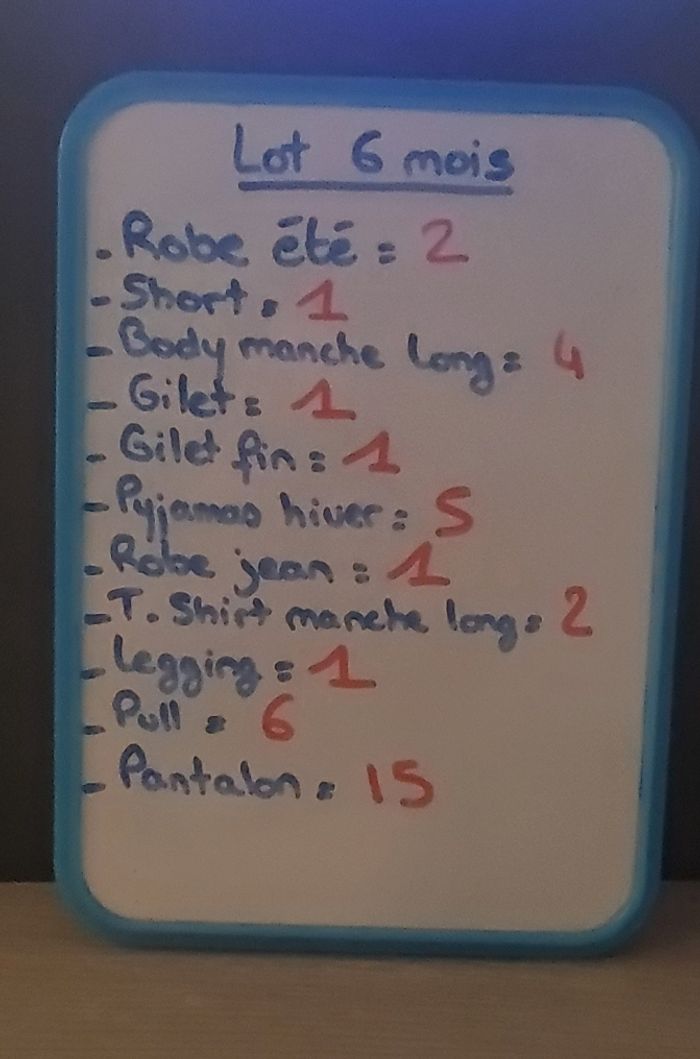 Lot 6 mois
- Robe été = 2
- Short = 1
- Body manche long = 4
- Gilet = 1
- Gilet fin = 1
- Pyjamas hiver = 5
- Robe jean = 1
- T. Shirt manche long = 2
- Legging = 1
- Pull = 6
- Pantalon = 15